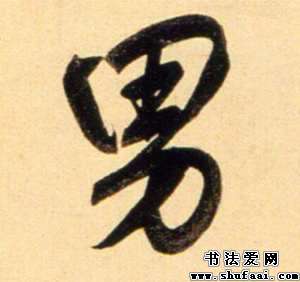 男
书法爱网
www.shufaai.com